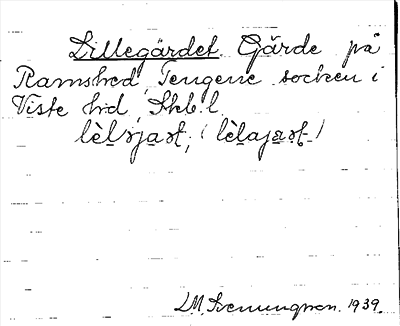 Lillegärdet. Gärde på
Ramshed, Tengene socken i
Viste hd, Skb. l.
lèlsjaət, (lèlajaət)
L.M. Svenungsson. 1939.